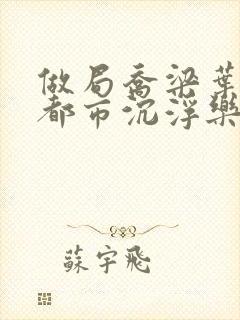 做局喬梁葉
都市沉浮樂
蘇宇飛